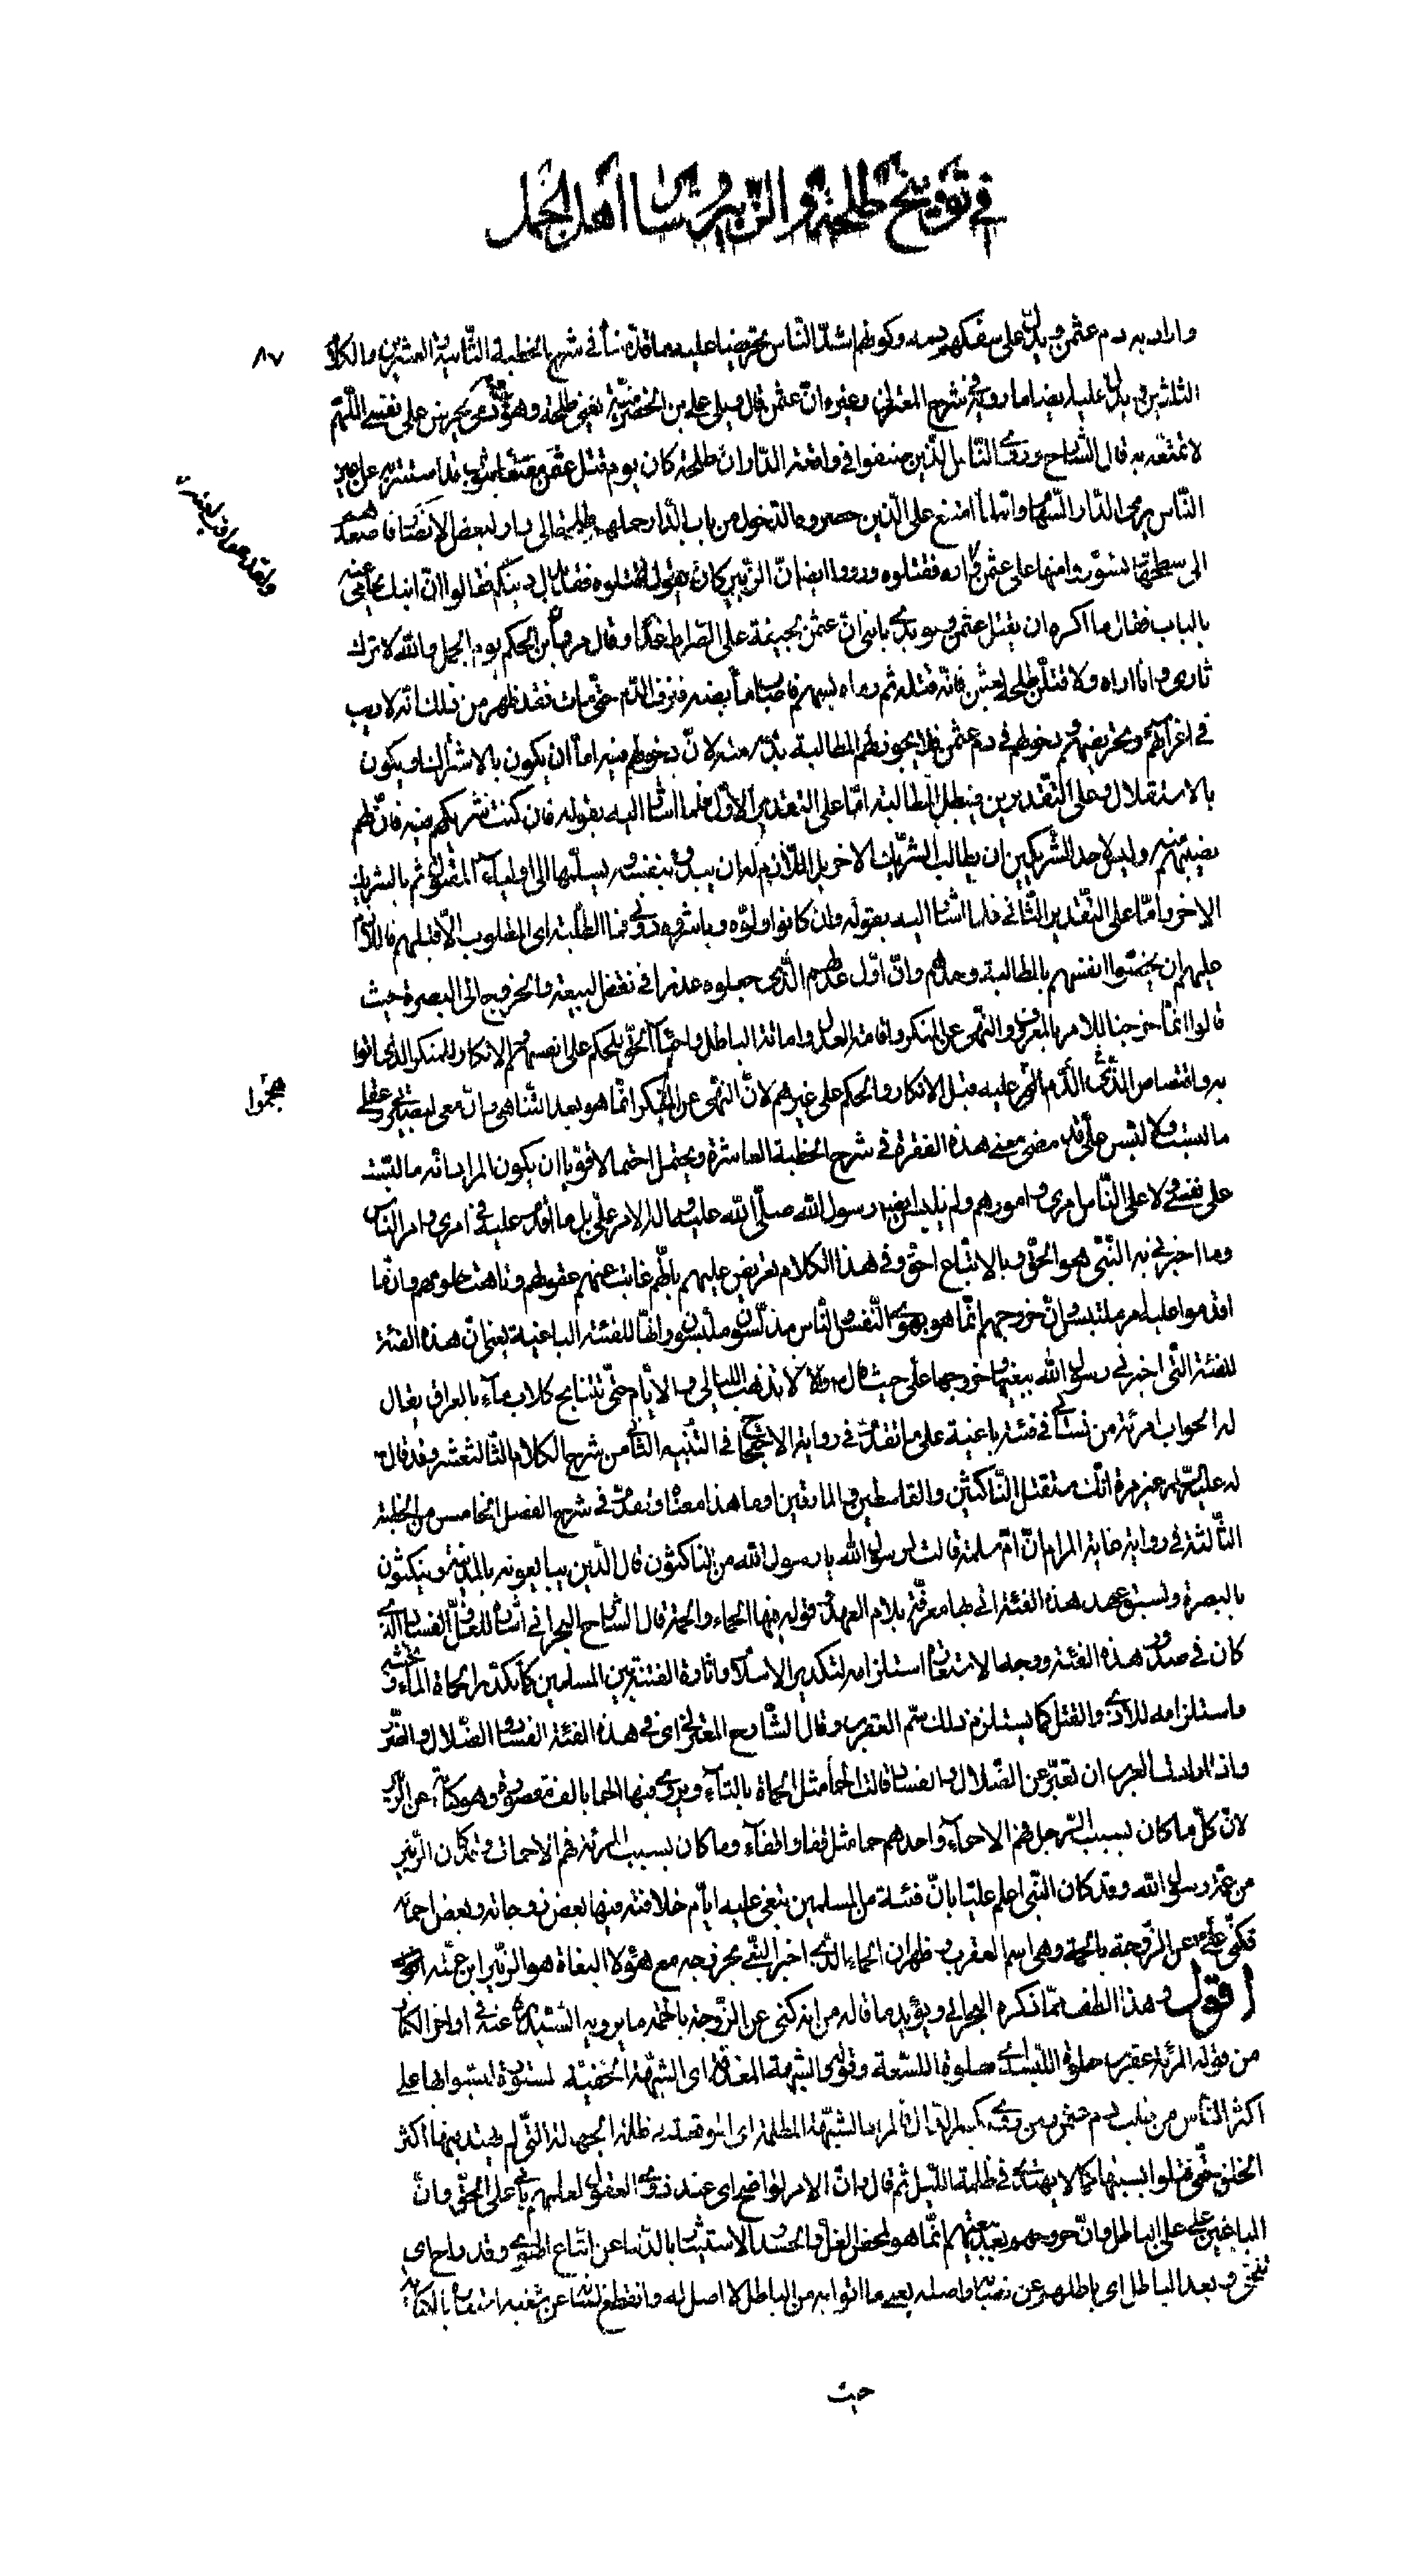 في توبيخ طلحة والزبير وسائر أهل الجمل
٨٧
واراد به دم عثمن ويدل على سفكهم دمه وكونهم اشد الناس تحريضا عليه ما قدمنا في شرح الخطبة الثانية والعشرين والكلام
الثلاثين ويدل عليه ايضا ما روى في شرح المعتزلي وغيره ان عثمن قال ويلي على ابن الحضرمية يعني طلحة وهو يحرض على نفسي اللهم
لا تمتعه به قال الشارح وروى الناس الذين صنفوا في واقعة الدار ان طلحة كان يوم قتل عثمن مقنعا بثوب قد استتر به عن اعين
الناس يرمى الدار السهام وانه لما امتنع على الذين حصروه الدخول من باب الدار حملهم طلحة الى دار لبعض الانصار فاصعدهم
الى سطحها وتسوروا منها على عثمن داره فقتلوه ورووا ايضا ان الزبير كان يقول اقتلوه فقد بدل دينكم فقالوا ان ابنك يحامى عنه
بالباب فقال ما اكره ان يقتل عثمن ولو بدئ بابنى ان عثمن لجيفة على الصراط غدا وقال مروان بن الحكم يوم الجمل والله لا اترك
ثارى وانا اراه ولاقتلن طلحة بعثمن فانه قتله ثم رماه بسهم فاصاب مأبضه فنزف الدم حتى مات فقد ظهر من ذلك انه لا ريب
في اغرائهم وتحريضهم ودخولهم في دم عثمن فلا يجوز لهم المطالبة بدمه لان دخولهم فيه اما ان يكون بالاشتراك او يكون
بالاستقلال وعلى التقديرين فيبطل المطالبة اما على التقدير الاول فلما اشار اليه بقوله فان كنت شريكهم فيه فان لهم
نصيبهم منه وليس لاحد الشريكين ان يطالب الشريك الاخر بل اللازم له ان يبدء بنفسه ويسلمها الى اولياء المقتول ثم بالشريك
الاخر واما على التقدير الثاني فلما اشار اليه بقوله وان كانوا ولوه وباشروه دوني فما الطلبة اى المطلوب الا قبلهم فاللازم
عليهم ان يخصوا انفسهم بالمطالبة وان اول عدلهم الذى جعلوه عذرا في نقض البيعة والخروج الى البصرة حيث
قالوا انما خرجنا للامر بالمعروف والنهى عن المنكر واقامة العدل واماتة الباطل واحياء الحق للحكم على انفسهم والانكار للمنكر الذى اتوا
به واقتصاص الدم عليه قبل الانكار والحكم على غيرهم لان النهى عن المنكر انما هو بعد التناهى وان معى لبصيرتي وعقلي
ما لبست ولا لبس على قد مضى معنى هذه الفقرة في شرح الخطبة العاشرة ويحتمل احتمالا قويا ان يكون المراد انه ما لبست
على نفسي ولا على الناس امرى وامورهم ولم يلبس ايضا رسول الله صلى الله عليه وآله الامر على بل ما اقدم عليه في امرى وامر الناس
وما اخبرني به النبي هو الحق وبالاتباع احق وفي هذا الكلام تعريض عليهم بانهم غابت عنهم عقولهم وتاهت حلومهم وان ما
اقدموا عليه امر ملتبس وان خروجهم انما هو بهوى النفس والناس مدلسون ملبسون وانها للفئة الباغية يعنى ان هذه الفئة
للفئة التى اخبرني رسول الله ببغيها وخروجها على حيث قال لا تذهب الليالى والايام حتى تتنابح كلاب ماء بالعراق يقال
له الحوأب امرئة من نسائي في فئة باغية على ما تقدم في رواية الاحتجاج في التنبيه الثاني من شرح الكلام الثالث عشر وقد قال
له عليه السلام غير مرة انك ستقتل الناكثين والقاسطين والمارقين او ما هذا معناه وتقدم في شرح الفصل الخامس من الخطبة
الثالثة في رواية غاية المرام ان ام سلمة قالت لرسول الله يا رسول الله من الناكثون قال الذين يبايعونه بالمدينة وينكثون
بالبصرة ولسبق عهد هذه الفئة اتى بها معرفة بلام العهد قوله فيها الحماء والحمة قال الشارح البحراني
كان في صدور هذه الفئة ووجه الاستعارة استلزامه لتكدير الاسلام واثارة الفتنة بين المسلمين كما تكدر الحماة الماء وتخبثه
واستلزامه للاذى والقتل كما يستلزم ذلك سم العقرب وقال الشارح المعتزلي اى في هذه الفئة الفساد والضلال والضرر
واذا ارادت العرب ان تعبر عن الضلال والفساد قالت الحمأ مثل الحماة بالتاء ويروى فيها الحما بالف مقصورة وهو كناية عن الزبير
لان كل ما كان بسبب الرجل فهم الاحماء واحدهم حما مثل قفا واقفاء وما كان بسبب المرئة فهم الاختان وقد كان الزبير
من عمة رسول الله وقد كان النبي اعلم عليا بان فئة من المسلمين تبغى عليه ايام خلافته فيها بعض زوجاته وبعض احمائه
فكنى على عن الزوجة بالحمة وهى اسم العقرب وظهر ان الحماء الذى اخبر النبي بخروجه مع هؤلاء البغاة هو الزبير ابن عمته
اقول وهذا الطف مما ذكره البحراني ويؤيد ما قاله من انه كنى عن الزوجة بالحمة ما يرويه السيد عنه في اواخر الكتاب
من قوله المرئة عقرب حلوة اللبسة اى حلوة اللسعة وقوله والشبهة المغدفة اى الشبهة الخفية المستورة لبسوا بها على
اكثر الناس من طلب دم عثمن ومن روى بكسر الدال فالمراد الشبهة المظلمة اى الموقعة في ظلمة الجهالة التى لم يهتد فيها اكثر
الخلق حتى قتلوا بسببها كما لا يهتدى في ظلمة الليل ثم قال وان الامر لواضح اى عند ذوى العقول لعلمهم بانى على الحق وان
الباغين على على الباطل وان خروجهم بعد بيعتهم انما هو لمحض الغل والحسد والاستيثار بالدنيا عن اتباع الهوى وقد زاح اى
تنحى وبعد الباطل اى باطلهم عن نصابه واصله يعنى ما اتوا به من الباطل لا اصل له وانقطع لسانه عن شغبه استعارة بالكناية
ولقد هموا في بعضه
هجموا
حيث